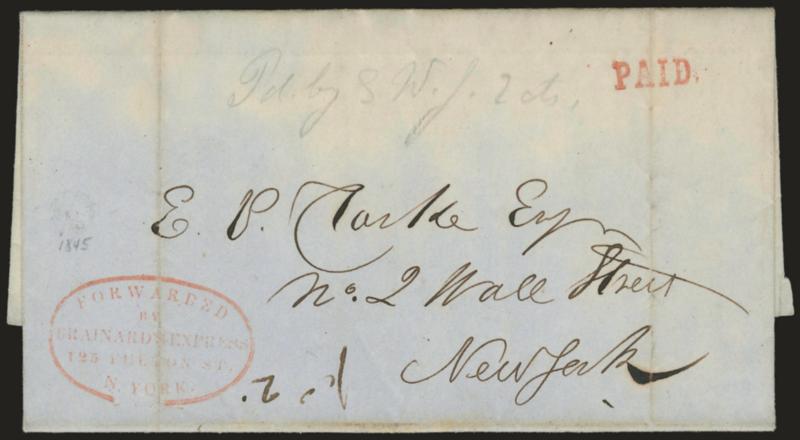 PAID.
Pd. by S W. J. 2 cts.
E. P. Clarke Esq
No. 2 Wall Street
New York
1845
FORWARDED
BY
BRAINARD'S EXPRESS
125 FULTON ST.
N. YORK.